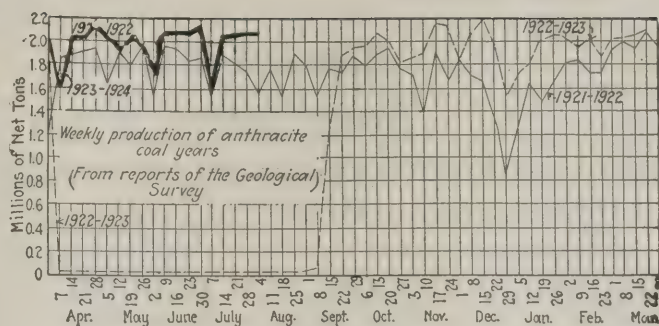 Millions of Net Tons
2.2
2.0
1.8
1.6
1.4
1.2
1.0
0.8
0.6
0.4
0.2
0
1922
1923-1924
1922-1923
1921-1922
Weekly production of anthracite
coal years
(From reports of the Geological)
Survey
1922-1923
7 14 21 28 5 12 19 26 2 9 16 23 30 7 14 21 28 4 11 18 25 1 8 15 22 29 6 13 20 27 3 10 17 24 1 8 15 22 29 5 12 19 26 2 9 16 23 1 8 15 22
Apr. May June July Aug. Sept. Oct. Nov. Dec. Jan. Feb. Mar